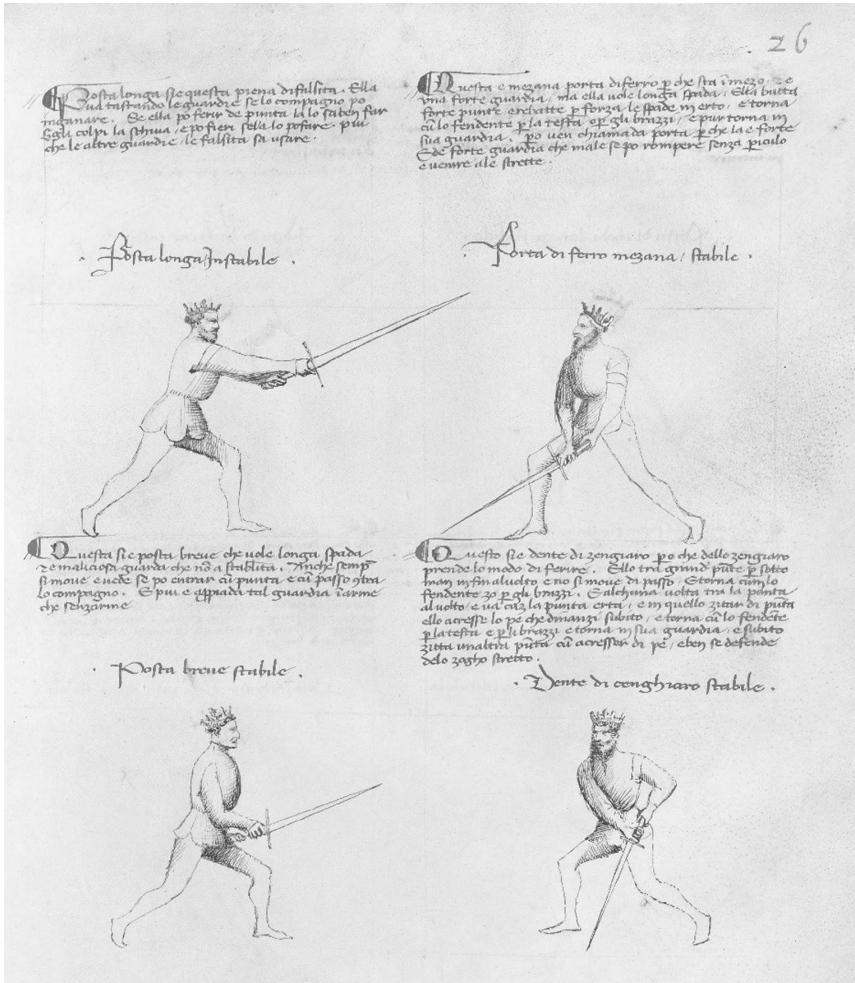 26
Posta longa sie questa piena di falsita. Ella
va tastando le guardie se lo compagno po
inganare. Se ella po ferir de punta la lo sa ben far
E gli colpi la schiva, e po fieri sela lo po fare. piu
che le altre guardie, le falsita sa usare.
Posta longa, Instabile.
Questa e mezana porta di ferro p che sta in mezo. & e
una forte guardia, ma ella vole longa spada. Ella butta
forte punte e rebatte p forza le spade in erto, e torna
cū lo fendente p la testa o p gli brazzi, e pur torna in
sua guardia. po ven chiamada porta p che la e forte
E de forte guardia che male se po rompere senza piculo
e venire ale strette.
Porta di ferro mezana, stabile.
Questa sie posta breve che vole longa spada
& e maliciosa guarda che nō a stabilita. Anche semp
si move e vede se po entrar cū punta e cū passo
lo compagno. E piu e appiada tal guardia in arme
che senz arme
Posta breve stabile.
Questo sie dente di zengiaro po che dello zengiaro
prende lo modo di ferire. Ello tra grand pūte p sotto
man in fin al volto e no si move di passo. E torna cum lo
fendente zo p gli brazzi. E alchuna volta tra la punta
al volto e va cū la punta erta, e in quello zitar di pūta
ello acresse lo pe che dinanzi subito, e torna cū lo fendēte
p la testa e p li brazzi e torna in sua guardia, e subito
zitta unaltra pūta cū acresser di pe, e ben se defende
delo zogho stretto.
Dente di cenghiaro stabile.